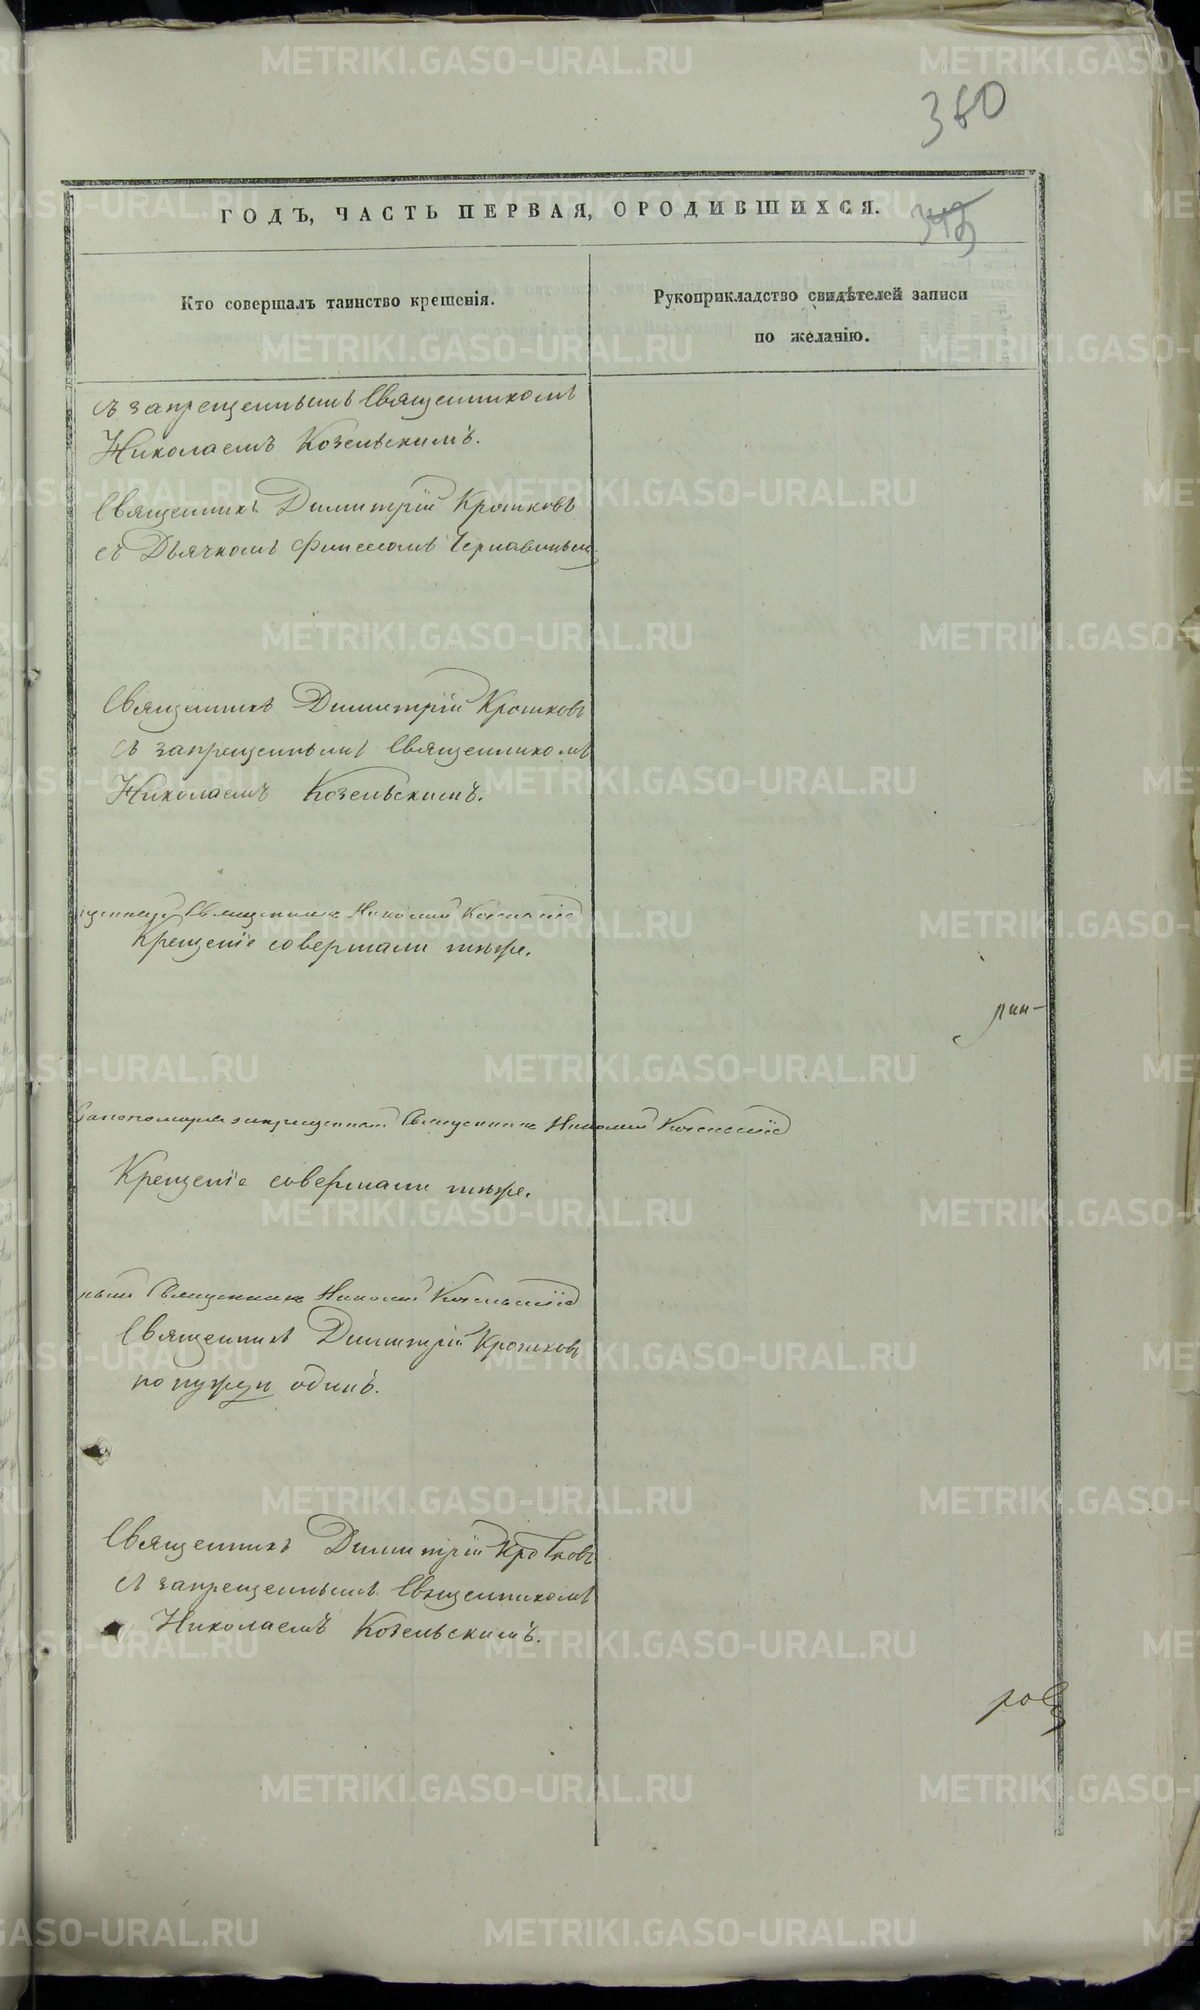 360
ГОДЪ, ЧАСТЬ ПЕРВАЯ, О РОДИВШИХСЯ.
Кто совершалъ таинство крещенія.
Рукоприкладство свидѣтелей записи
по желанію.
съ запрещеннымъ Священникомъ
Николаемъ Козельскимъ.
Священникъ Димитрій Кротковъ
съ Дьячкомъ Чернавинымъ
Священникъ Димитрій Кротковъ
съ запрещеннымъ Священникомъ
Николаемъ Козельскимъ.
Священникъ Николай Козельскій
Крещеніе совершали тѣже.
рин-
запрещенный Священникъ Николай Козельскій
Крещеніе совершали тѣже.
ный Священникъ Николай Козельскій
Священникъ Димитрій Кротковъ
по нужды одинъ.
Священникъ Димитрій Кротковъ
съ запрещеннымъ Священникомъ
Николаемъ Козельскимъ.
METRIKI.GASO-URAL.RU